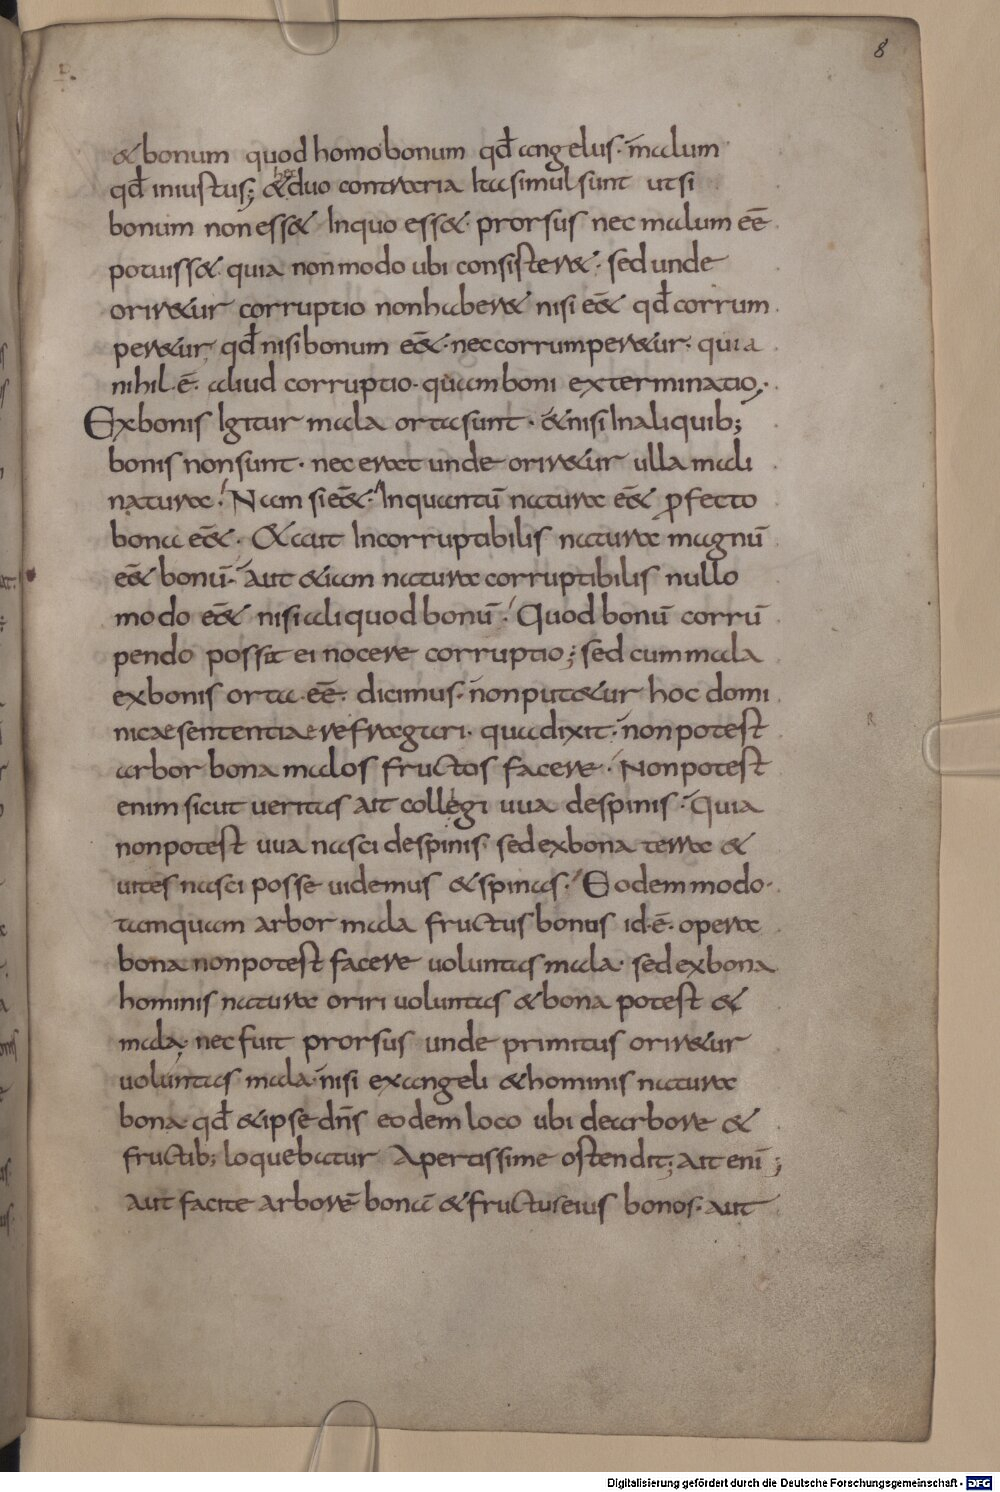 8
& bonum quod homo bonum qđ angelus · malum
qđ iniustus; & hec duo contraria ita simul sunt ut si
bonum non ess& Inquo ess& · prorsus nec malum eē
potuiss& · quia non modo ubi consister& · sed unde
orir&ur corruptio non haber& nisi eē& qđ corrum
per&ur, qđ nisi bonum eē& · nec corrumper&ur · quia
nihil · ē · aliud corruptio · quam boni exterminatio, ·
Ex bonis Igitur mala orta sunt · & nisi In aliquib;
bonis non sunt · nec erat unde orir&ur ulla mali
natura · Nam si eē& · Inquantū natura eē& ꝓfecto
bona eē& · & aut Incorruptibilis natura magnū
eē& bonū · Aut &iam natura corruptibilis nullo
modo eē& nisi aliquod bonū · Quod bonū corrū
pendo possit ei nocere corruptio; sed cum mala
ex bonis orta · eē · dicimus · non put&ur hoc domi
nicae sententiae refragari · qua dixit · non potest
arbor bona malos fructos facere · Non potest
enim sicut ueritas ait collegi uua de spinis · Quia
non potest uua nasci de spinis · sed ex bona terra &
uites nasci posse uidemus & spinas · Eodem modo ·
tamquam arbor mala fructus bonus id · ē · opera
bona non potest facere uoluntas mala · sed ex bona
hominis natura oriri uoluntas & bona potest &
mala, nec fuit prorsus unde primitus orir&ur
uoluntas mala · nisi ex angeli & hominis natura
bona · qđ & ipse dn̄s eodem loco ubi de arbore &
fructib; loquebatur Apertissime ostendit; ait enī;
Aut facite arborē bonā & fructus eius bonos · aut
Digitalisierung gefördert durch die Deutsche Forschungsgemeinschaft - DFG